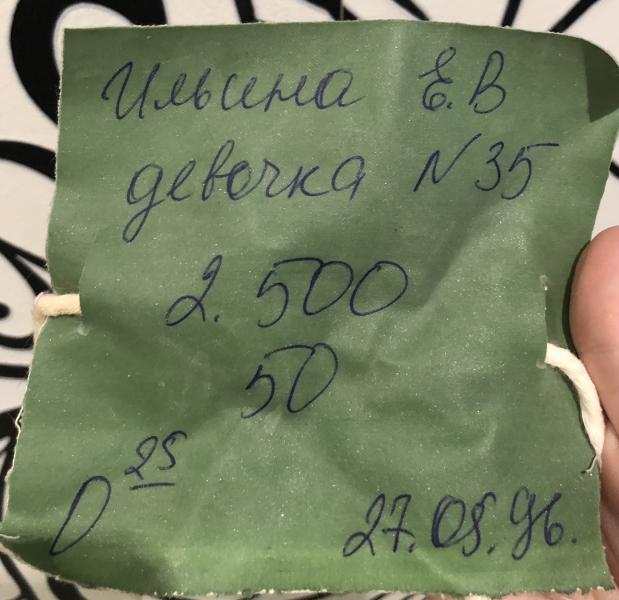 Ильина Е.В
девочка N 35
2.500
50
0 25
27.05.96.